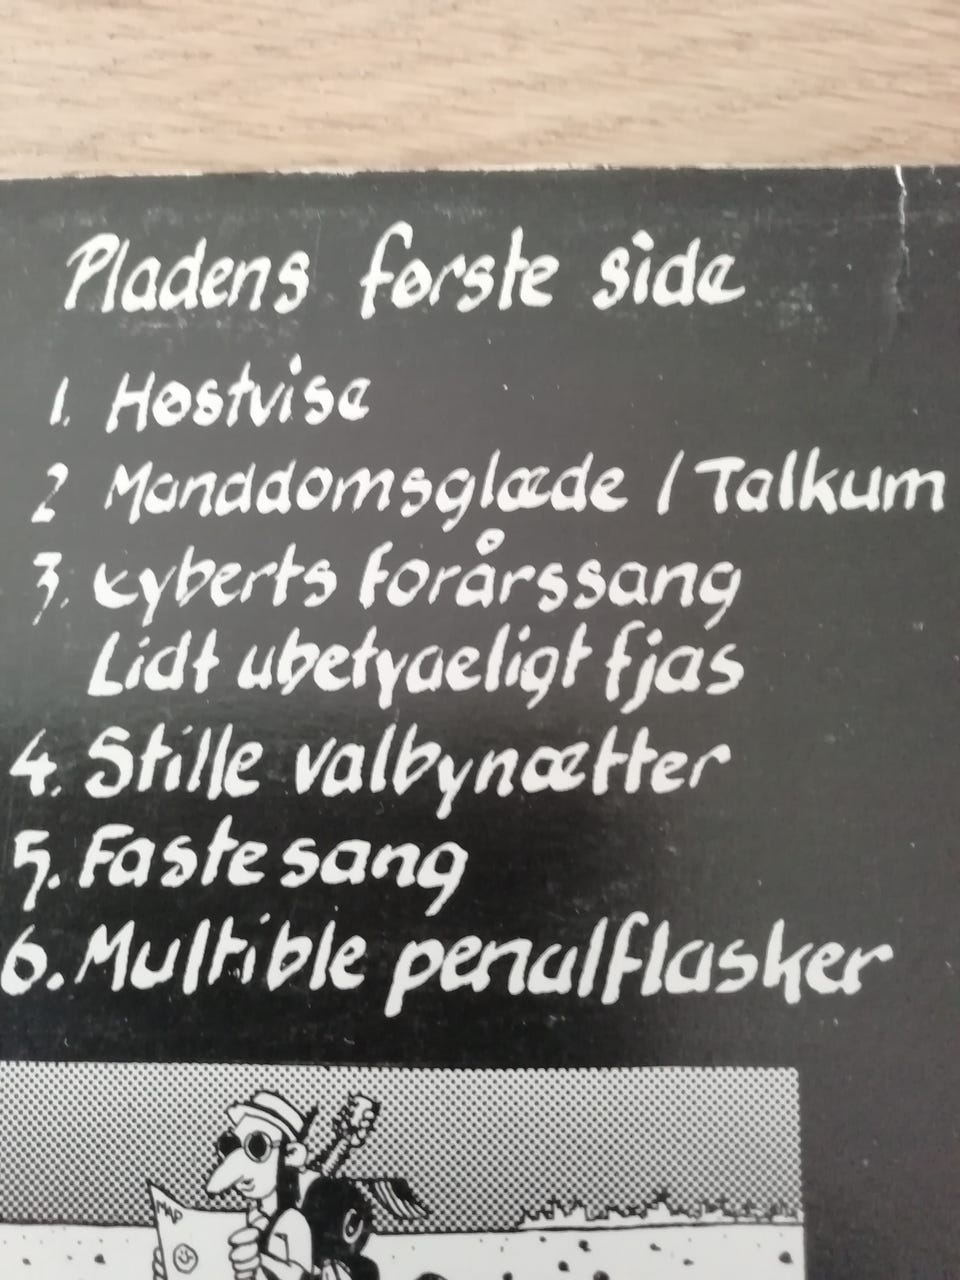 Pladens første side
1. Høstvise
2 Manddomsglæde / Talkum
3. Kyberts forårssang
Lidt ubetydeligt fjas
4. Stille valbynætter
5. Faste sang
6. Multible penalflasker
MAP